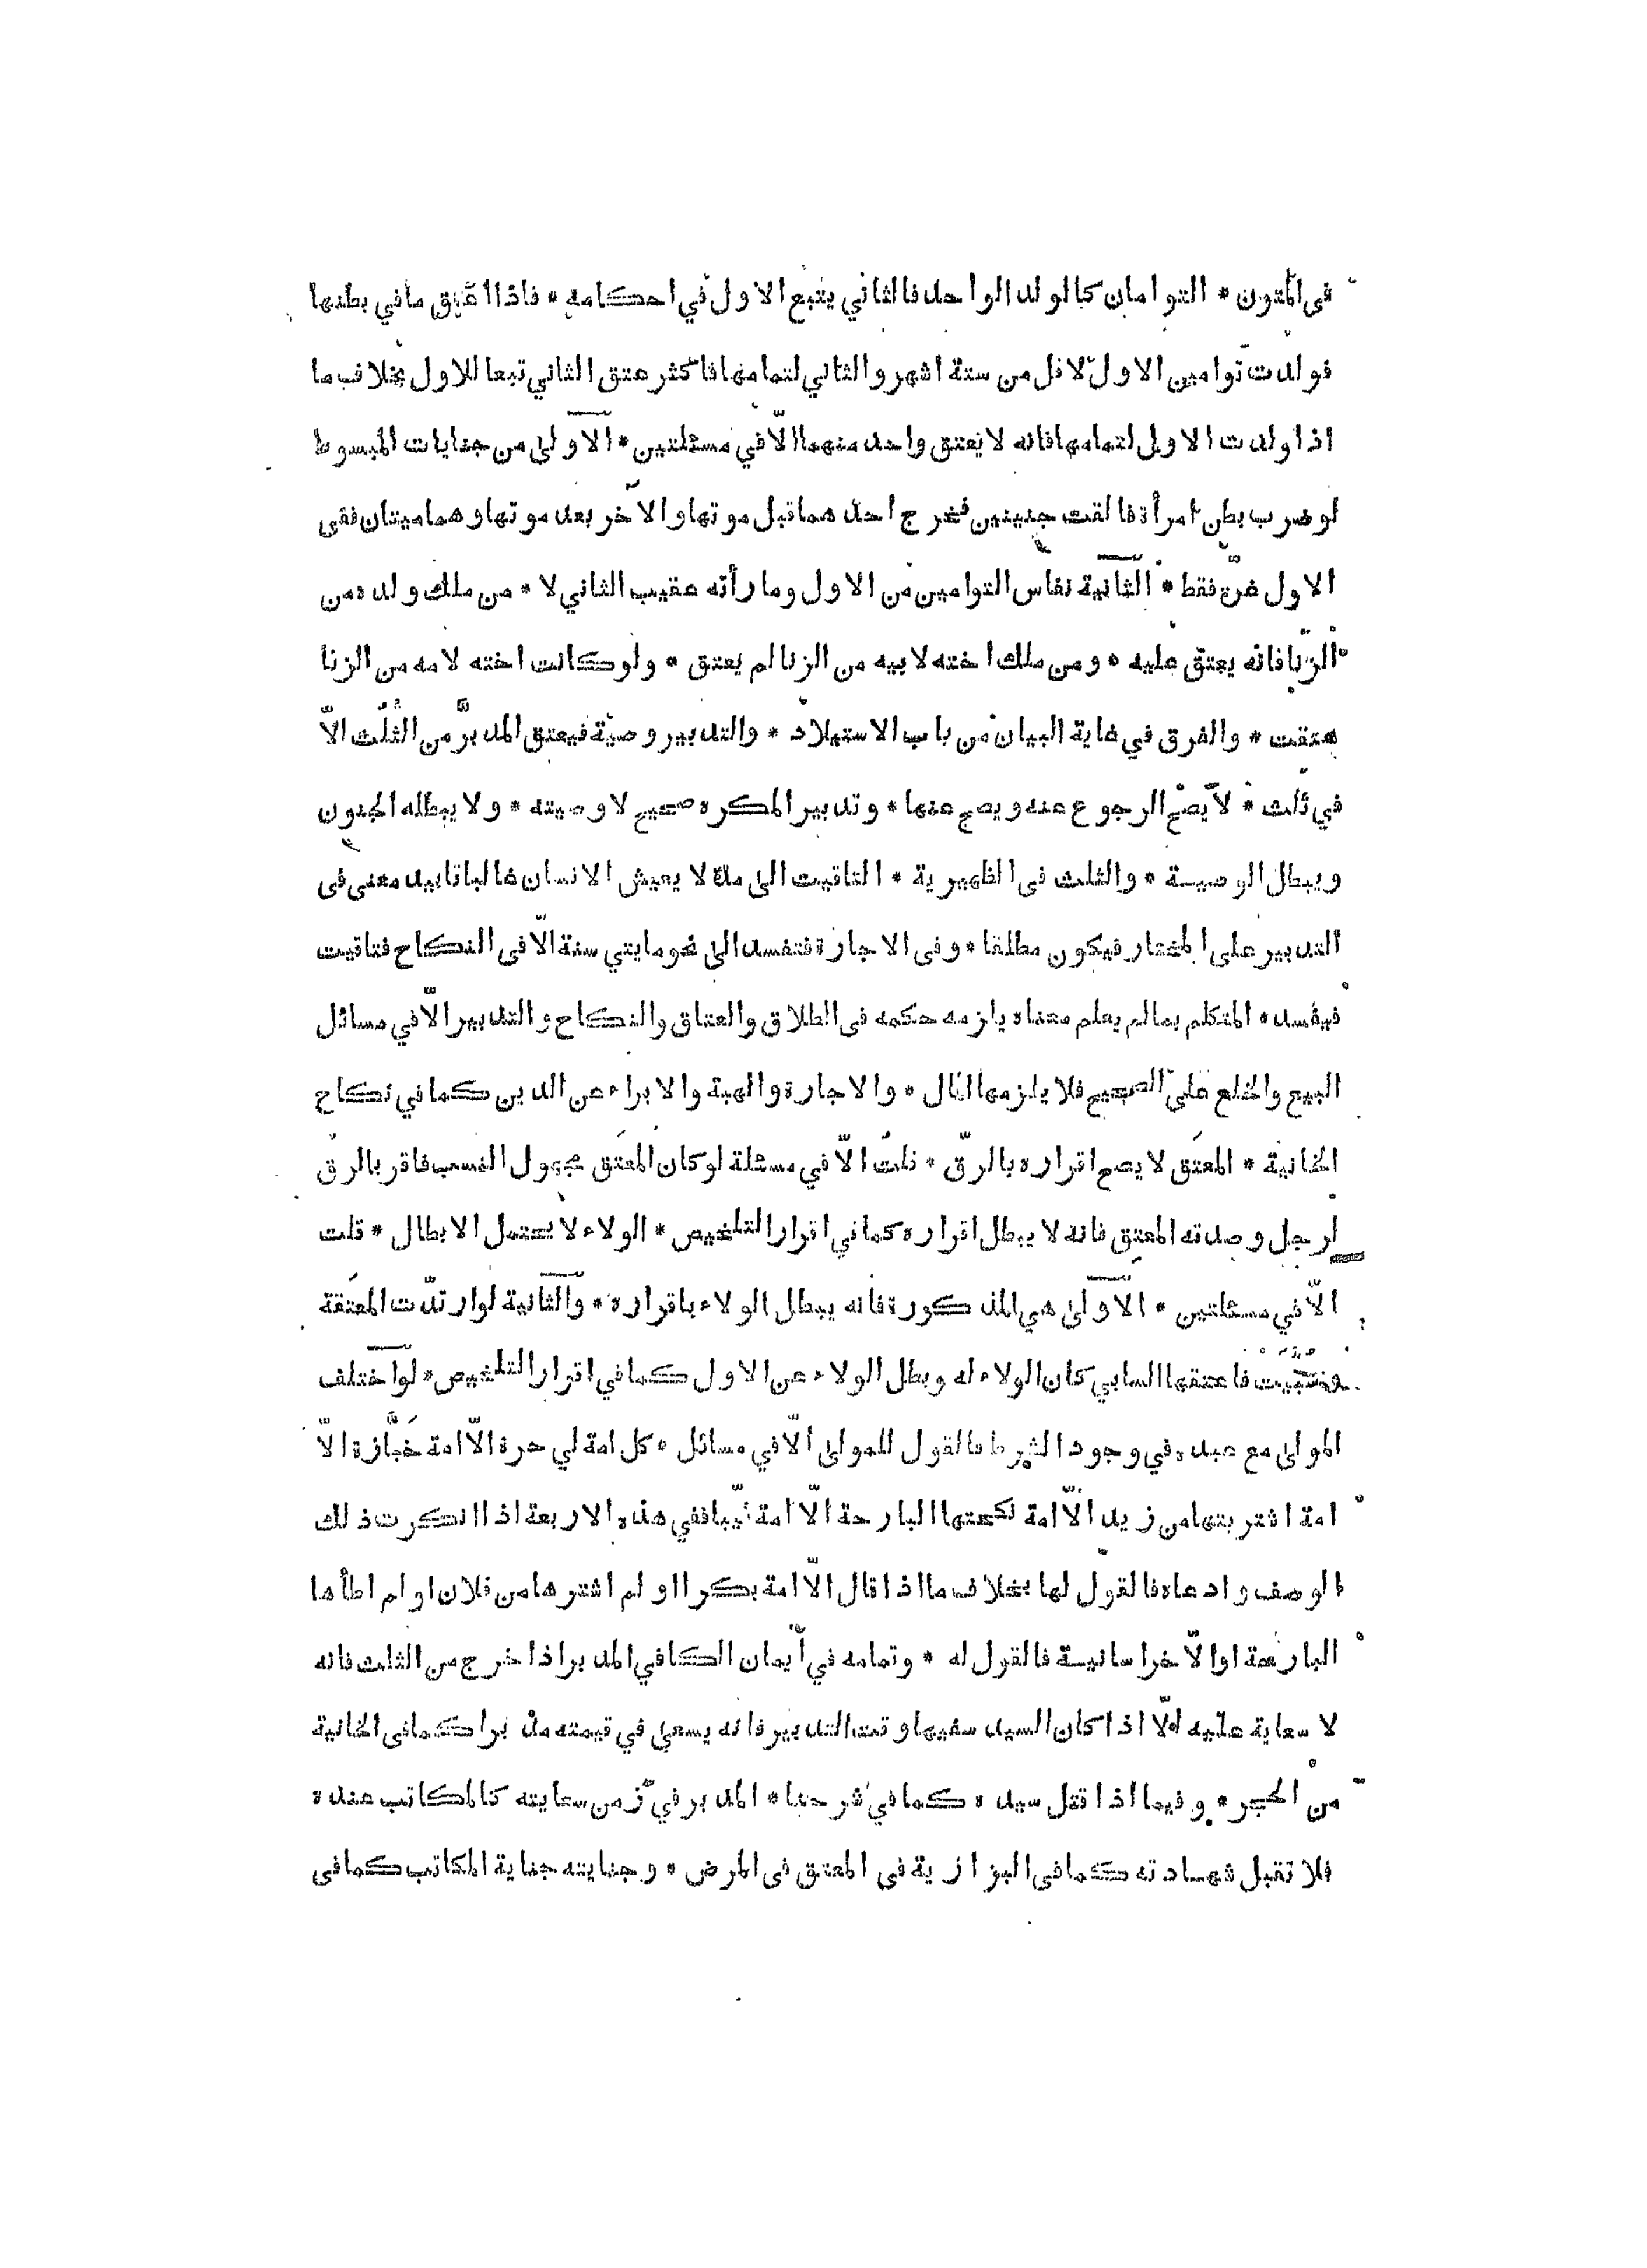 فى المتون * التوامان كالولد الواحد فالثاني يتبع الاول في احكامه * فاذا اعتق مافي بطنها
فولدت توامين الاول لاقل من ستة اشهر والثاني لتمامها فاكثر عتق الثاني تبعا للاول بخلاف ما
اذا ولدت الاول لتمامها فانه لا يعتق واحد منهما الّا في مسئلتين * الاولى من جنايات المبسوط
لو ضرب بطن امرأة فالقت جنينين فخرج احدهما قبل موتها والآخر بعد موتها وهما ميتان ففى
الاول غرّة فقط * الثانية نفاس التوامين من الاول وما رأته عقيب الثاني لا * من ملك ولده من
الزّنا فانه يعتق عليه * ومن ملك اخته لابيه من الزنا لم يعتق * ولو كانت اخته لامه من الزنا
عتقت * والفرق في غاية البيان من باب الاستيلاد * والتدبير وصيّة فيعتق المدبَّر من الثُلُث الّا
في ثلث * لا يصحّ الرجوع عنه ويصح عنها * وتدبير المكره صحيح لا وصيته * ولا يبطله الجنون
ويبطل الوصية * والثلث فى الظهيرية * التاقيت الى مدة لا يعيش الانسان غالبا تابيد معنى فى
التدبير على المختار فيكون مطلقا * وفى الاجارة فتفسد الى نحو مايتي سنة الّا فى النكاح فتاقيت
فيفسد * المتكلم بمالم يعلم معناه يلزمه حكمه فى الطلاق والعتاق والنكاح والتدبير الّا في مسائل
البيع والخلع على الصحيح فلا يلزمها المال * والاجارة والهبة والابراء عن الدين كما في نكاح
الخانية * المعتَق لا يصح اقراره بالرقّ * قلت الّا في مسئلة لو كان المعتَق مجهول النسب فاقر بالرق
لرجل وصدقه المعتِق فانه لا يبطل اقراره كما في اقرار التلخيص * الولاء لا يحتمل الابطال * قلت
الّا في مسئلتين * الاولى هي المذكورة فانه يبطل الولاء باقراره * والثانية لو ارتدّت المعتَقة
وسُبيت فاعتقها السابي كان الولاء له وبطل الولاء عن الاول كما في اقرار التلخيص * لو اختلف
المولى مع عبده في وجود الشرط فالقول للمولى الّا في مسائل * كل امة لي حرة الّا امة خَبَّازة الّا
امة اشتريتها من زيد الّا امة نكحتها البارحة الّا امة ثيّبا ففي هذه الاربعة اذا انكرت ذلك
الوصف وادعاه فالقول لها بخلاف ما اذا قال الّا امة بكرا او لم اشترها من فلان او لم اطأها
البارحة او الّا خراسانية فالقول له * وتمامه في أيمان الكافي المدبر اذا خرج من الثلث فانه
لا سعاية عليه الّا اذا كان السيد سفيها وقت التدبير فانه يسعى في قيمته مدبرا كما فى الخانية
من الحجر * وفيما اذا قتل سيده كما في شرحنا * المدبر في زمن سعايته كالمكاتب عنده
فلا تقبل شهادته كما فى البزازية فى المعتق فى المرض * وجنايته جناية المكاتب كما فى